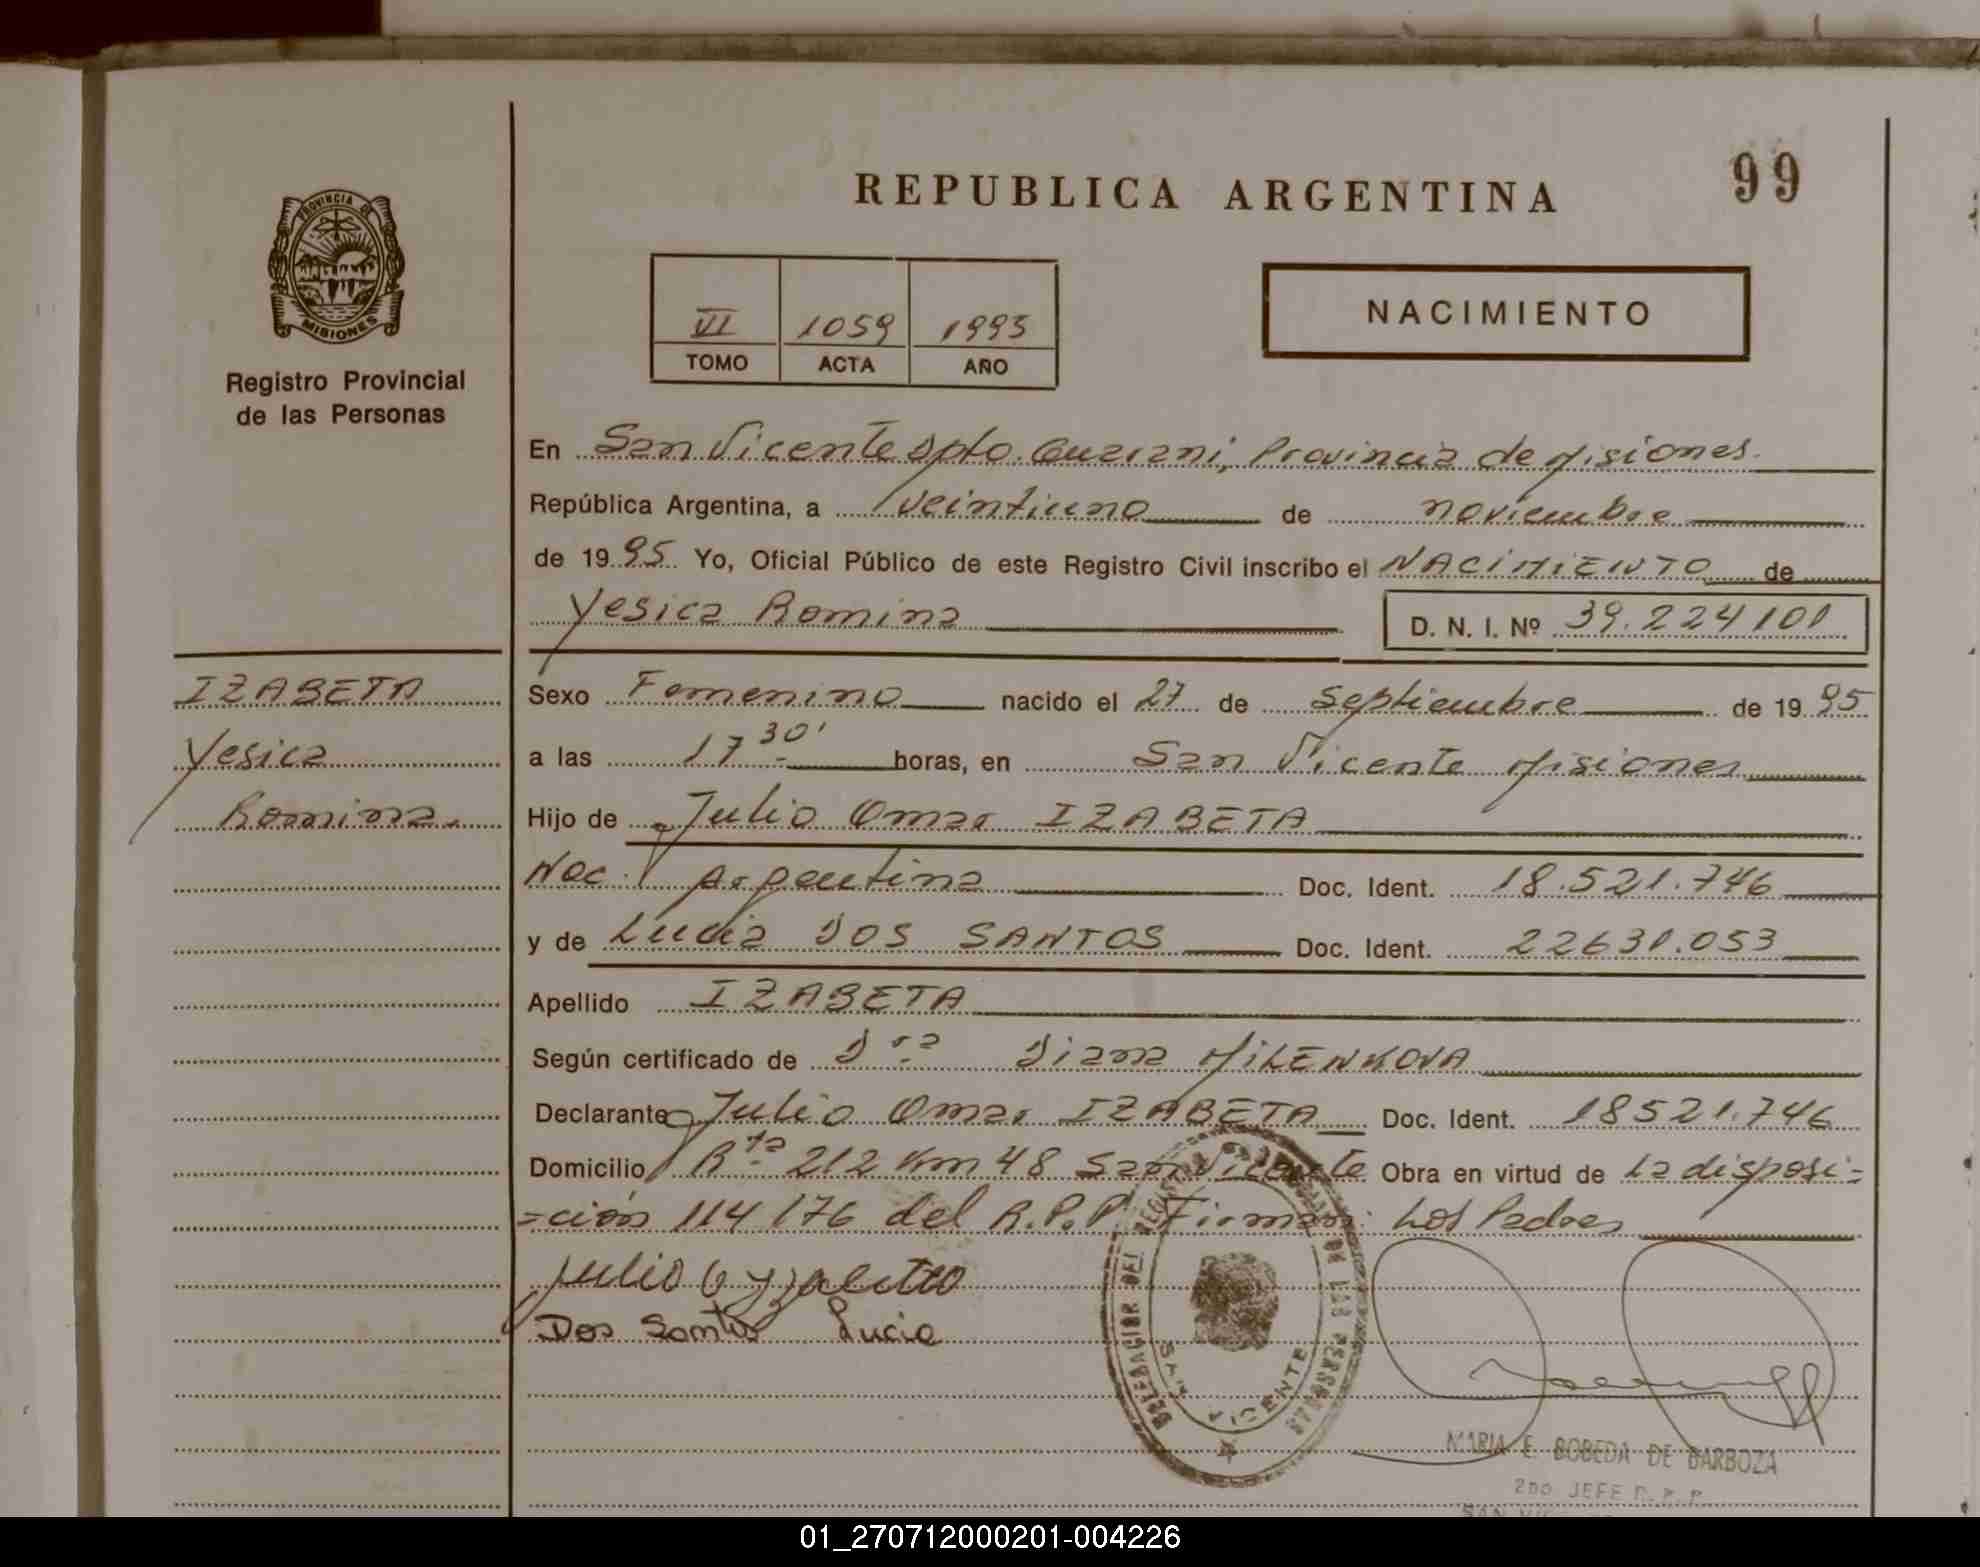 99
REPUBLICA ARGENTINA
PROVINCIA DE
MISIONES
Registro Provincial
de las Personas
VI 1059 1995
TOMO ACTA AÑO
NACIMIENTO
En San Vicente Dpto. Guarani, Provincia de Misiones.
República Argentina, a veintiuno de noviembre
de 1995 Yo, Oficial Público de este Registro Civil inscribo el NACIMIENTO de
Yesica Romina D. N. I. Nº 39.224101
IZABETA
Yesica
Romina.
Sexo Femenino nacido el 27 de septiembre de 1995
a las 17 30' horas, en San Vicente Misiones
Hijo de Julio Omar IZABETA
Nac. Argentina Doc. Ident. 18.521.746
y de Lucia DOS SANTOS Doc. Ident. 22631.053
Apellido IZABETA
Según certificado de Dra Diana MILENKOVA
Declarante Julio Omar IZABETA Doc. Ident. 18521.746
Domicilio Rta 212 Km 48 San Vicente Obra en virtud de la disposi=
=ción 114/76 del R.P.P. Firman: Los Padres
Julio
Dos Santos Lucia
DELEGACION DEL REGISTRO DE LAS PERSONAS
SAN VICENTE
MARIA E. BOBEDA DE BARBOZA
2DO JEFE R.P.P.
01_270712000201-004226